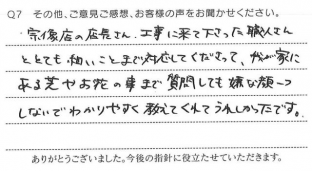 Q7 その他、ご意見ご感想、お客様の声をお聞かせください。
宗像店の店長さん、工事に来て下さった職人さん
とても細いことまで対応してくださって、我が家に
ある芝やお花の事まで質問しても嫌な顔一つ
しないでわかりやすく教えてくれてうれしかったです。
ありがとうございました。今後の指針に役立たせていただきます。